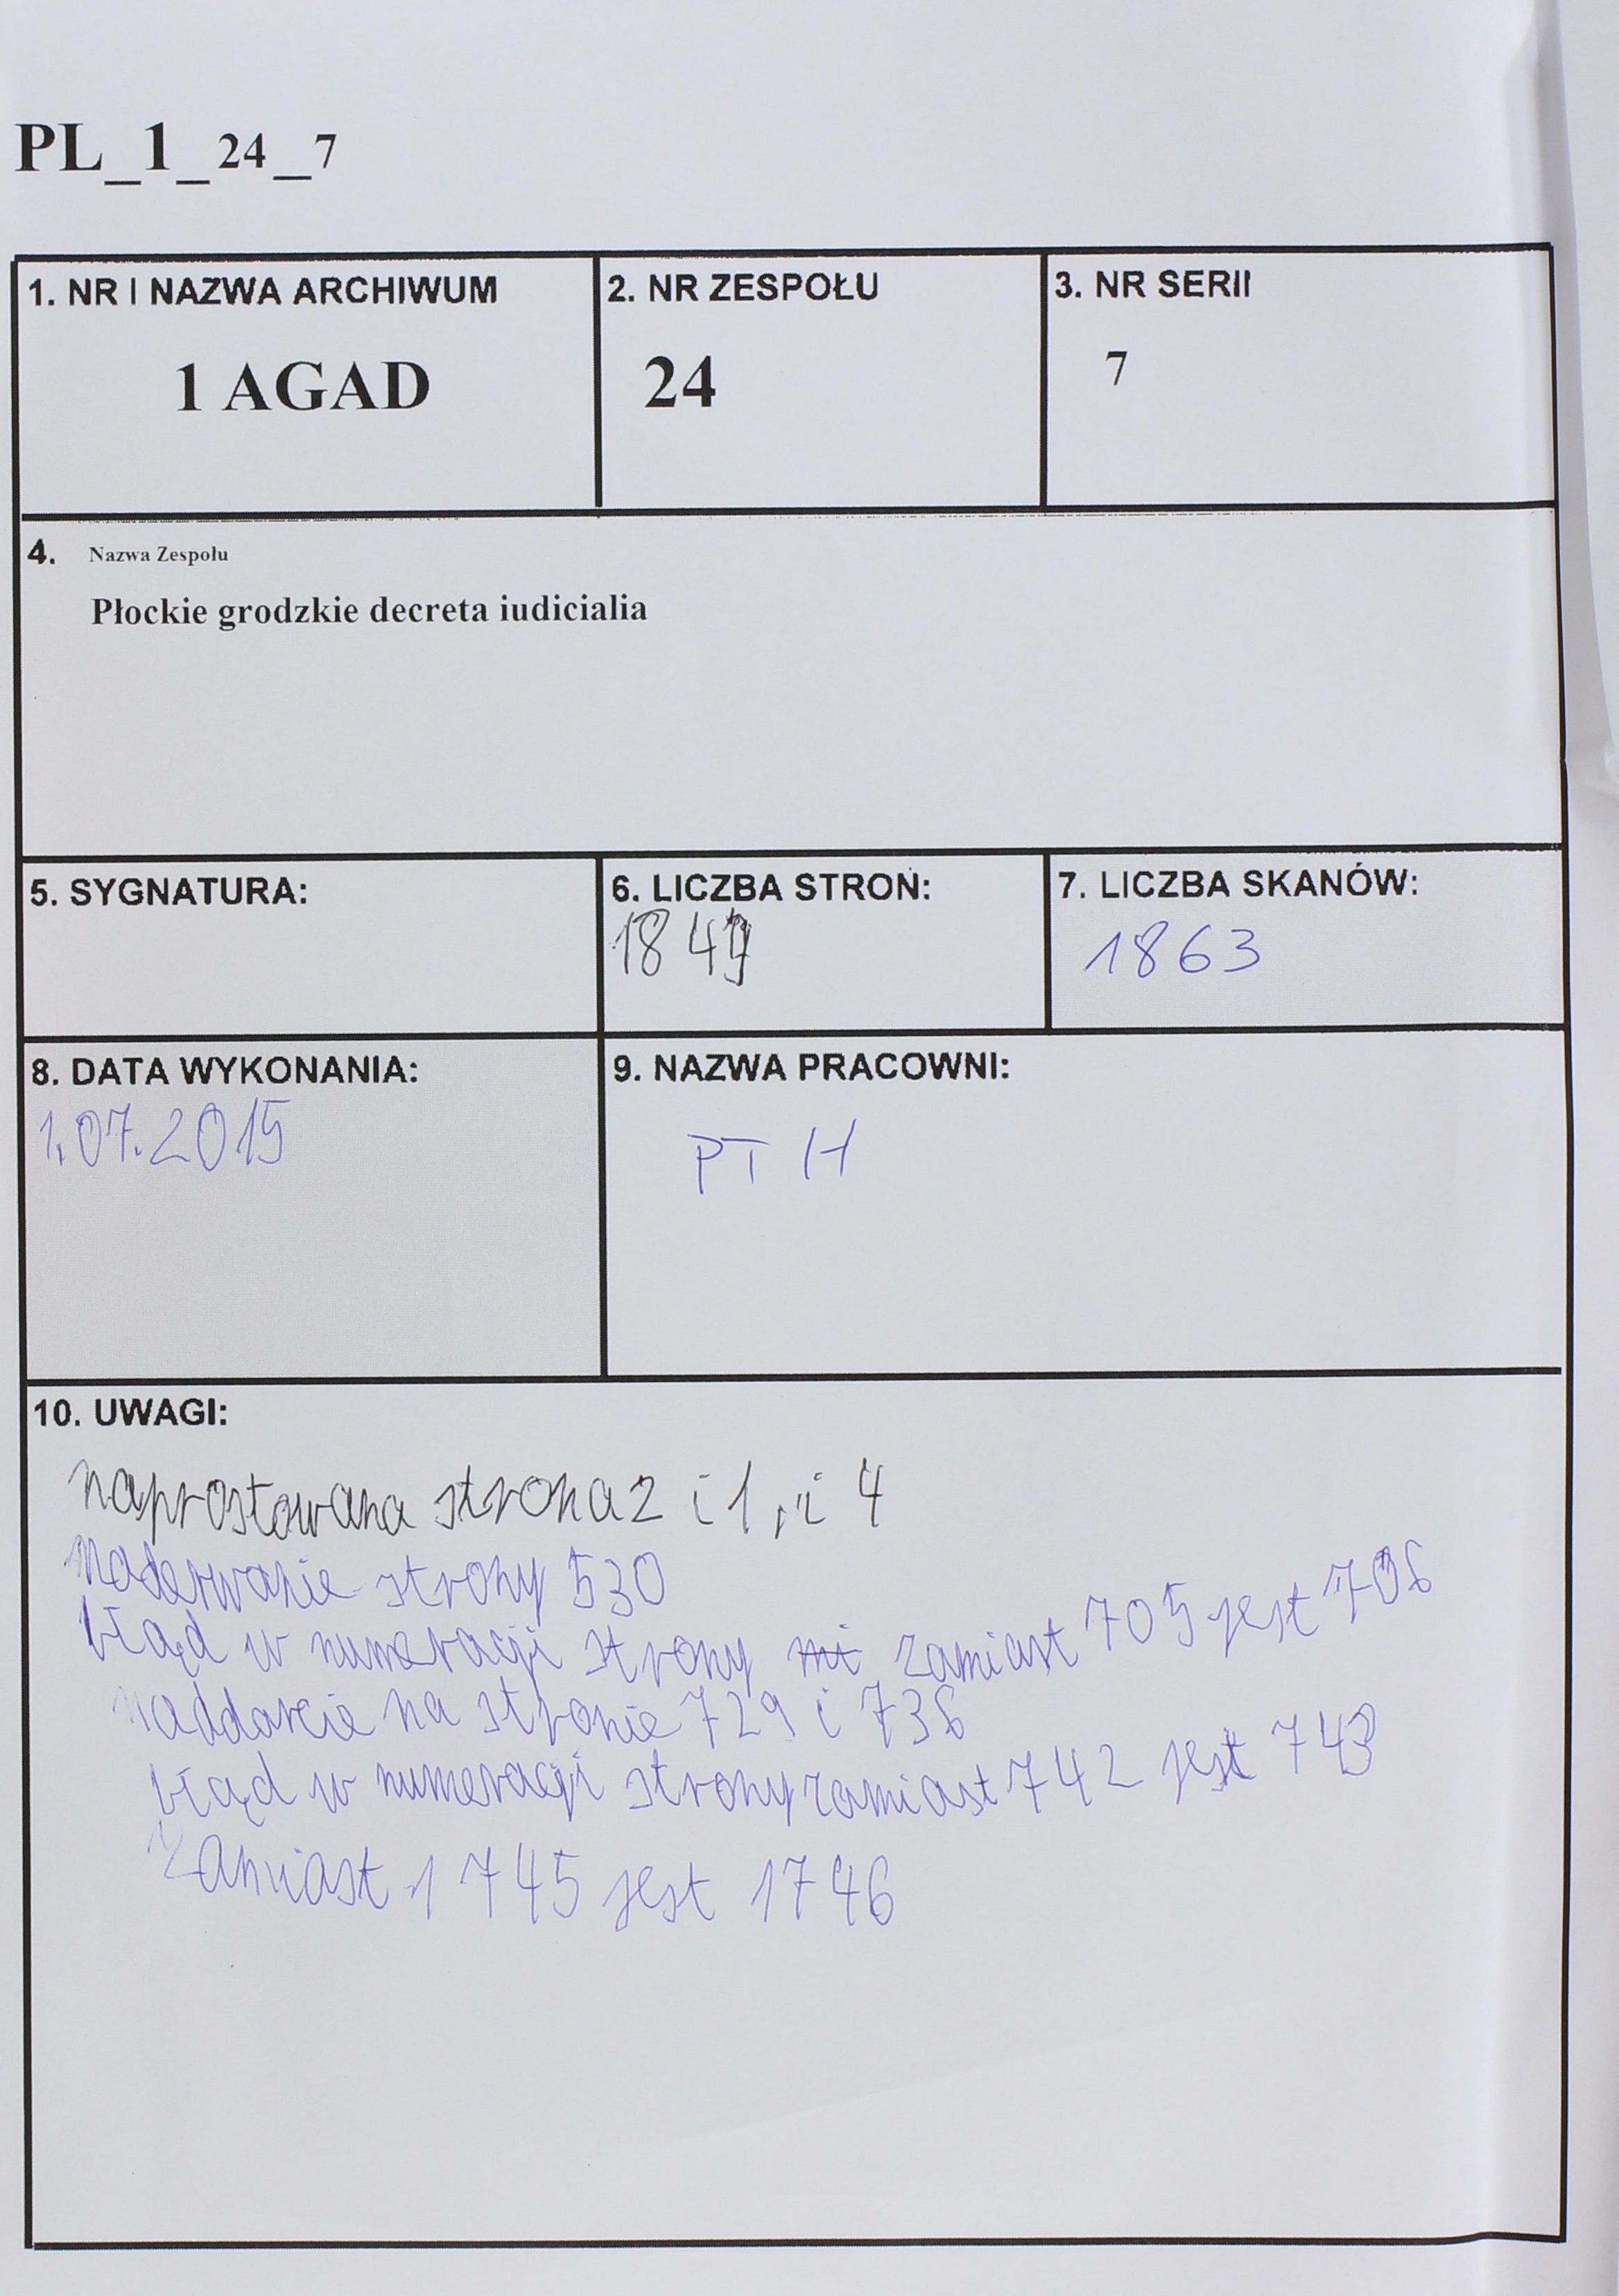 PL_1_24_7
1. NR I NAZWA ARCHIWUM
1 AGAD
2. NR ZESPOŁU
24
3. NR SERII
7
4. Nazwa Zespołu
Płockie grodzkie decreta iudicialia
5. SYGNATURA:
6. LICZBA STRON:
7. LICZBA SKANÓW:
1863
8. DATA WYKONANIA:
1.07.2015
9. NAZWA PRACOWNI:
PTH
10. UWAGI:
naprostowana strona 2 i 1, i 4
naderwanie strony 530
błąd w numeracji strony zamiast 705 jest 706
naddarcie na stronie 729 i 736
błąd w numeracji strony zamiast 742 jest 743
zamiast 1745 jest 1746